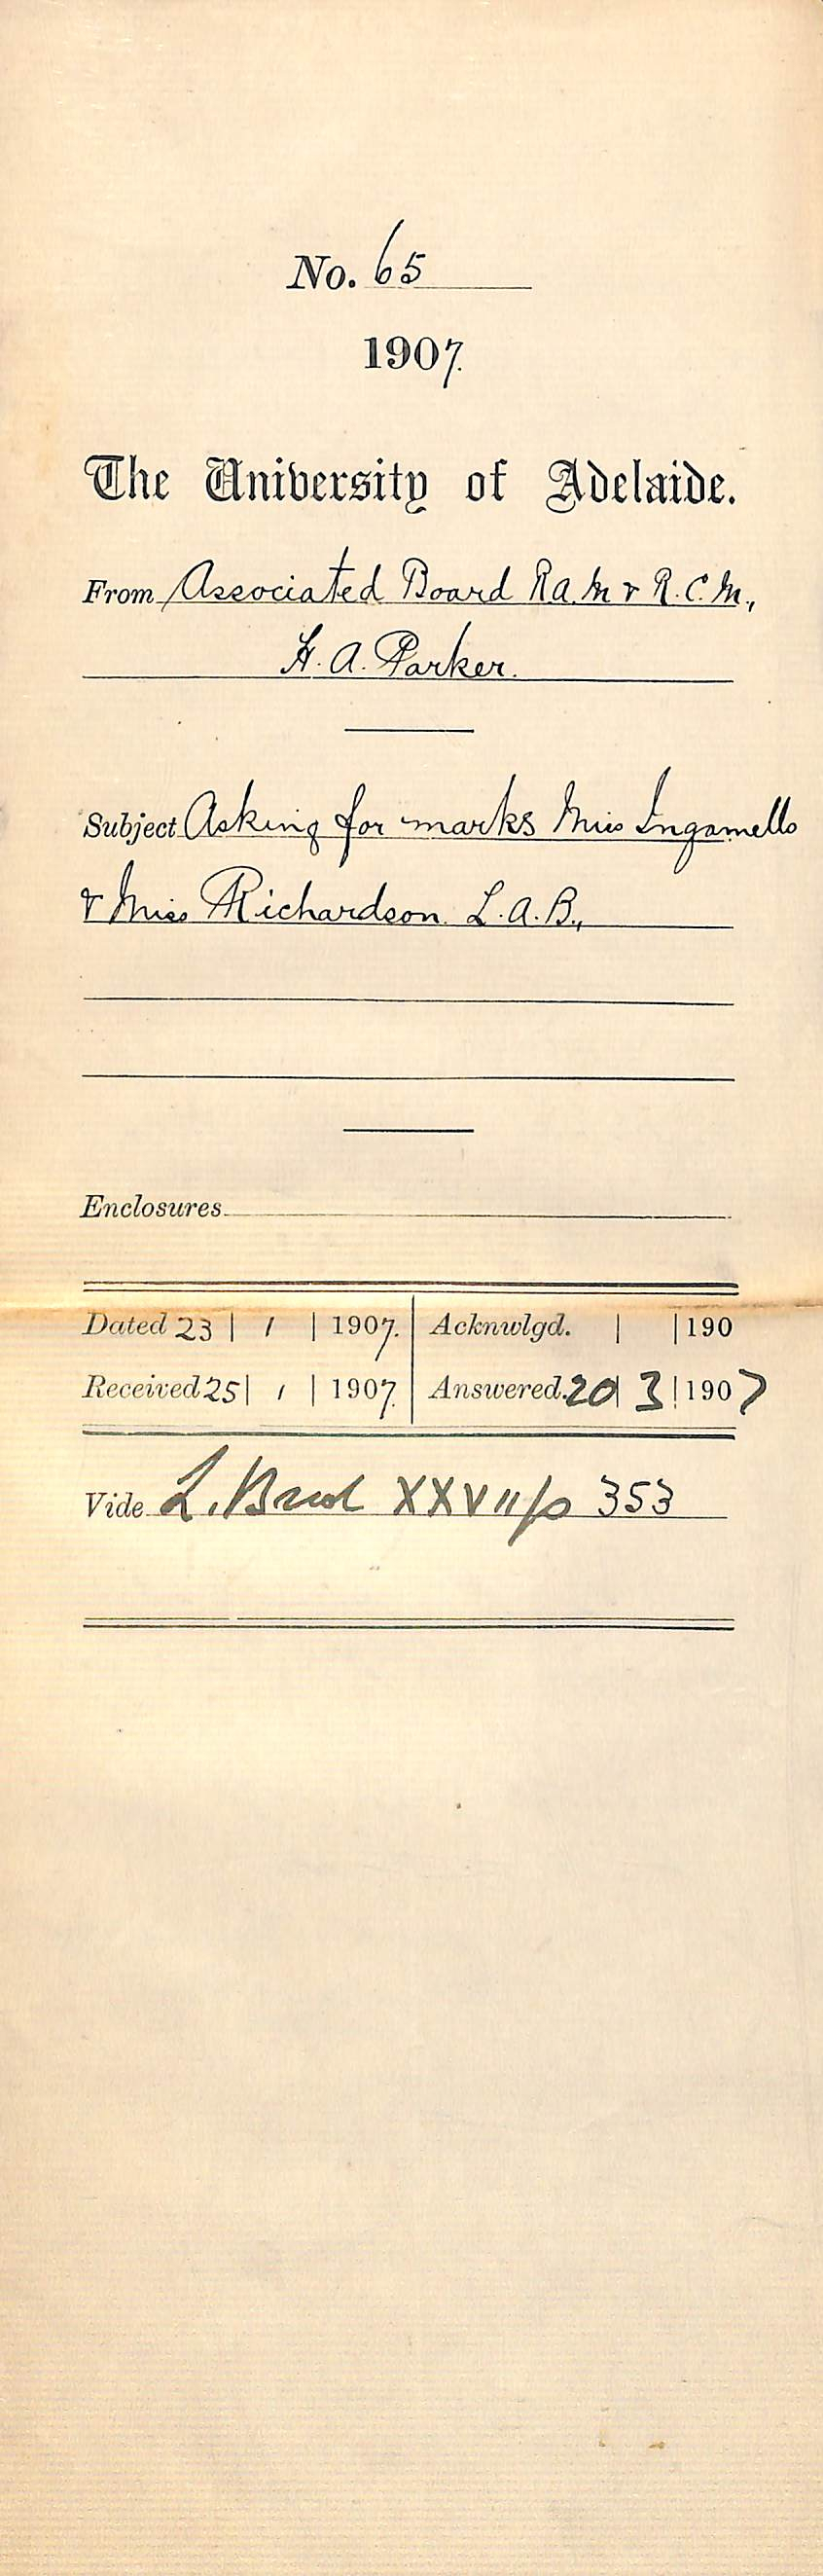 No. 65
1907.
The University of Adelaide.
From Associated Board R.A.M & R.C.M.,
H. A. Parker.
Subject Asking for marks Miss Ingamells
& Miss Richardson. L.A.B.,
Enclosures
Dated 23 | 1 | 1907. Acknwlgd. | | 190
Received 25 | 1 | 1907. Answered. 20 | 3 | 1907
Vide L. Book XXVII p 353